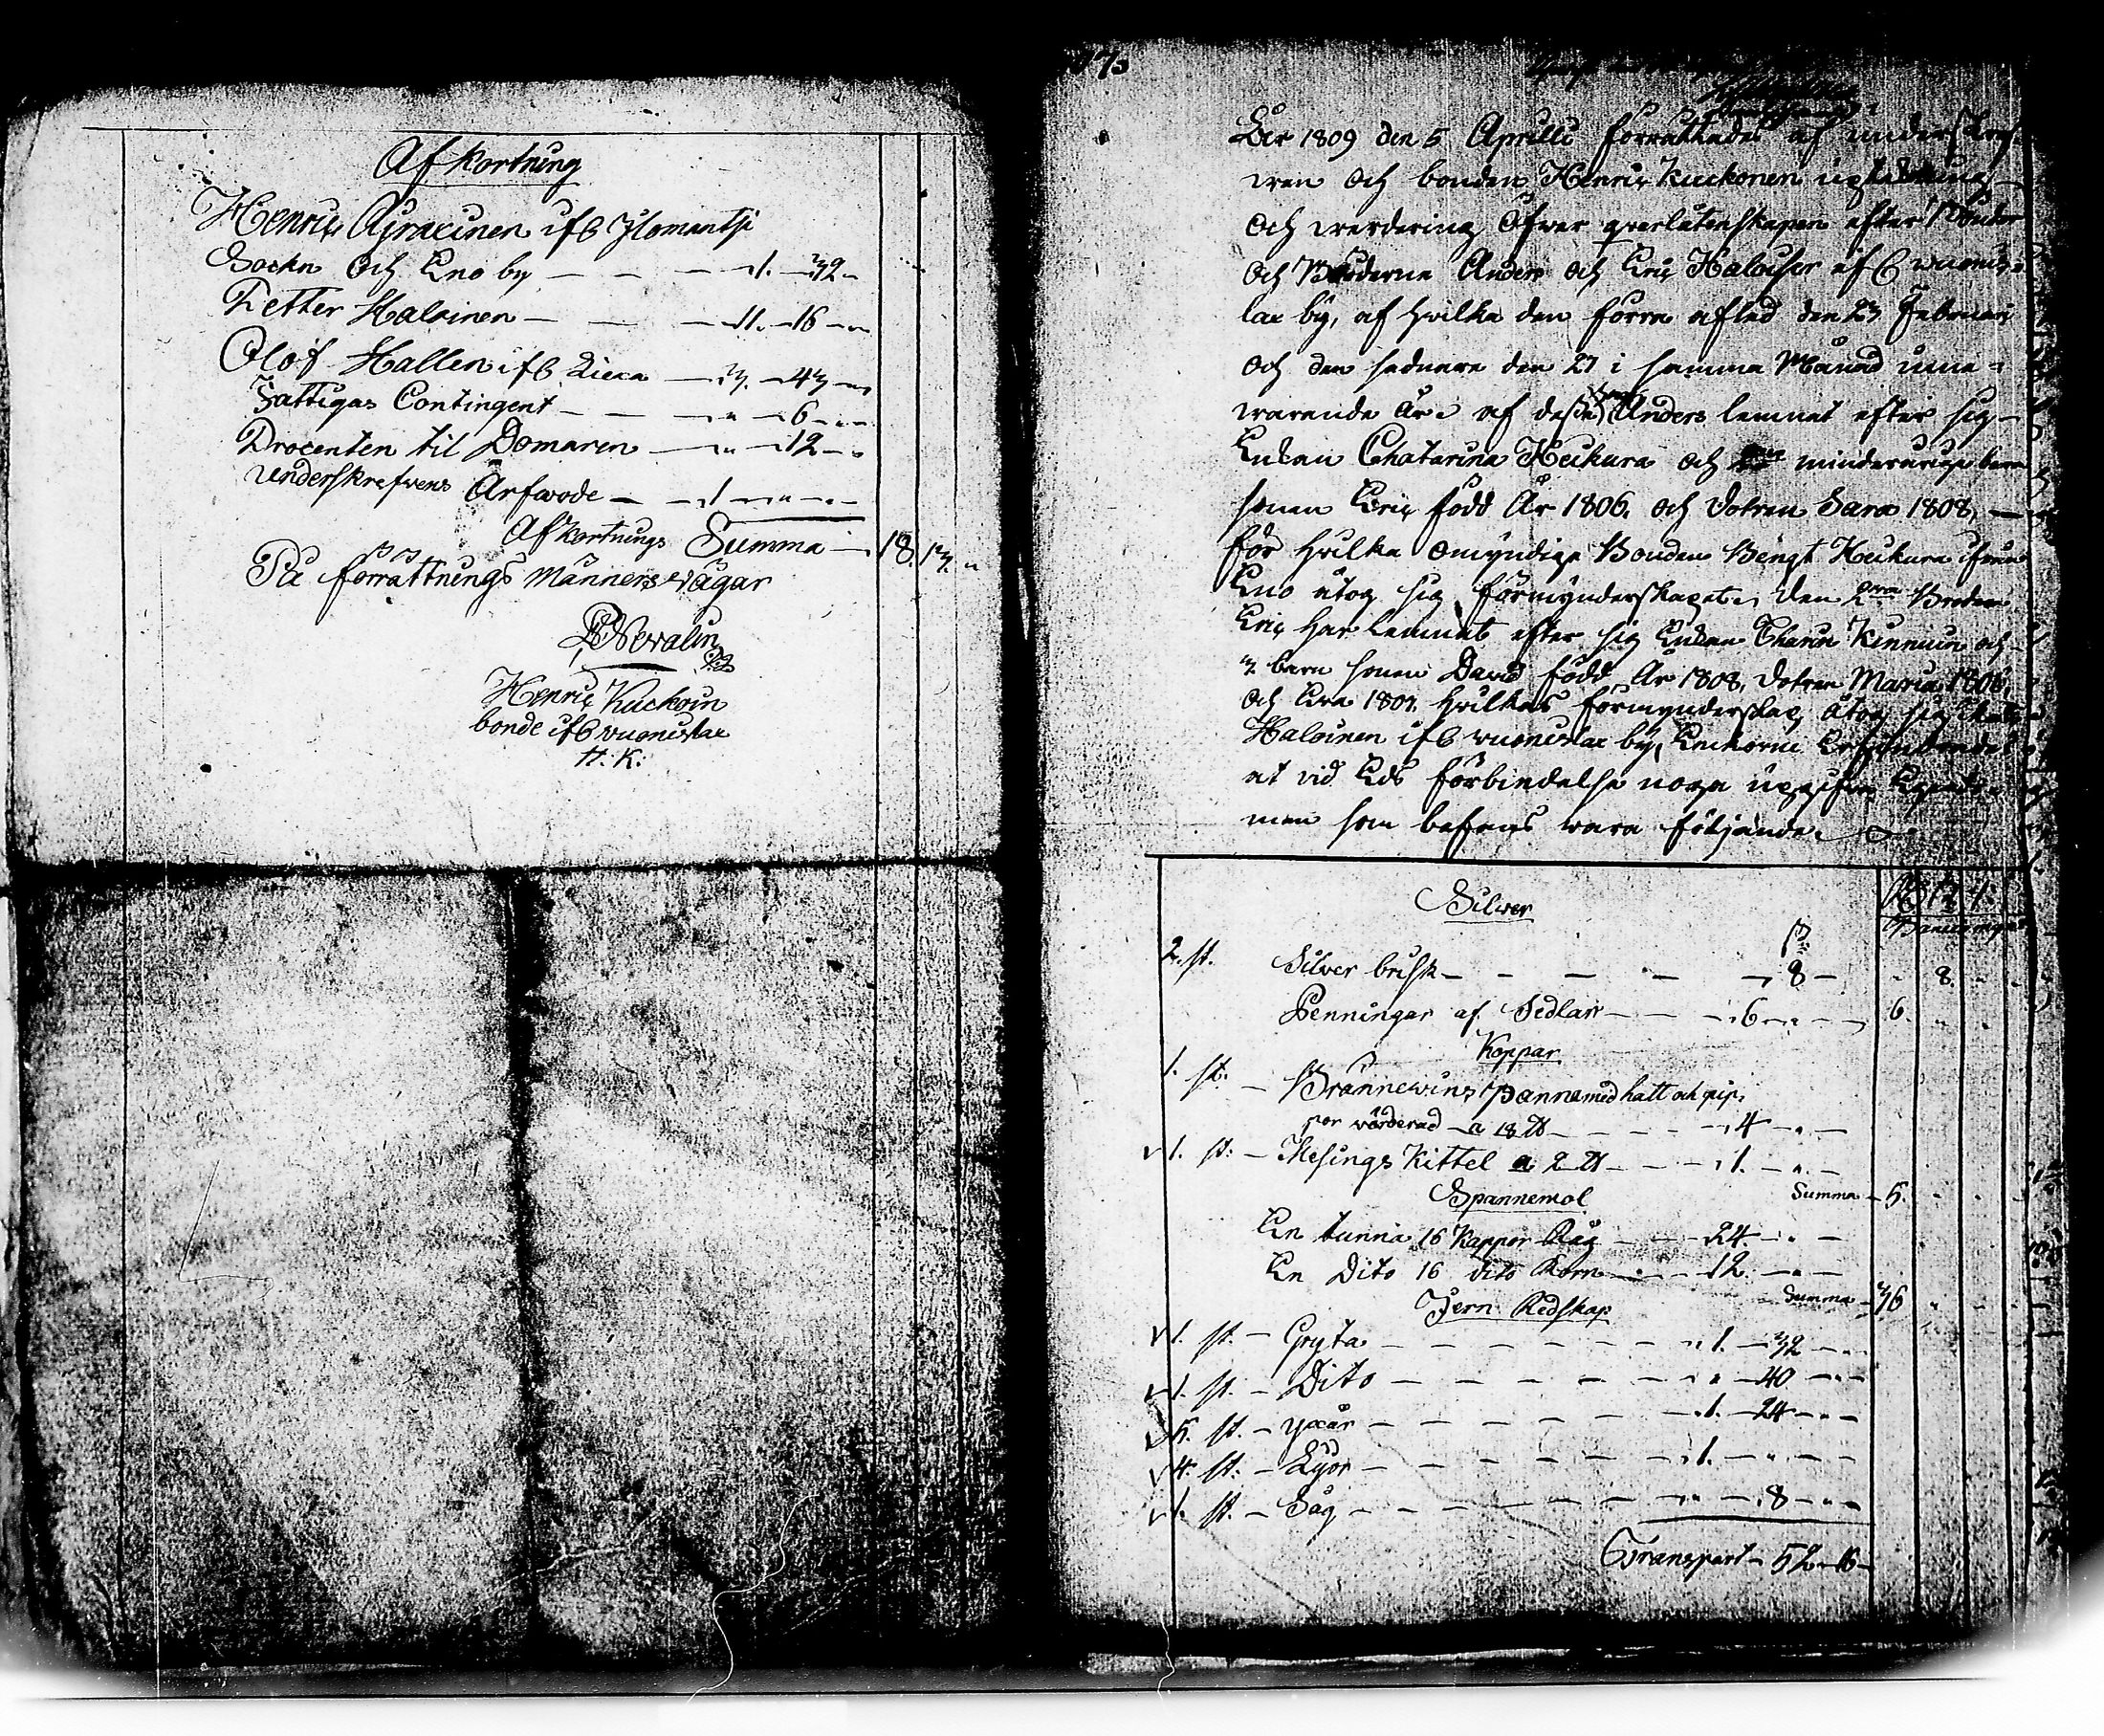 Afkortning
Henric Ajraxinen ifr Jlomantsi
Sockn Och Eno by — 1. 32
Petter Haloinen — 11. 16
Olof Hallen ifr — 3. 43
Fattigas Contingent — " 6
Procenten til Domaren — " 12
Underskrefvens Arfwode — 1 "
Afkortnings Summa — 18. 13. "
På förrättnings Männers vägar
Henric Kuckoin
bonde ifr wuonislax
H: K:
173
År 1809 den 5 Aprilli förrättades af underskref
wen Och bonden Henric Kuckonen upteckning
Och werdering öfwer qvarlåtenskapen efter Bonden
Och Bröderna Anders Och Eric Haloiser ifr wuonis=
lax by, af hvilka den förra afled den 23 Februari
Och den sednare den 27 i samma Månad inne=
warande År. af dessa Anders lemnat efter sig
Enkan Chatarina Keikura och minderåriga barn
sonen Eric född År 1806. och dotren Sara 1808,
för hvilka omyndiga Bonden Bengt Keikura ifrån
Eno åtog sig förmynderskapet, den Brodren
Eric har lemnat efter sig Enkan Kinnuin och
3 barn sonen David född År 1808, dotren Maria 1806,
och Eva 1807. hvilkas förmynderskap åtog sig
Haloinen ifr wuonislax by, Enkorne
at vid Eds förbindelse noga uppgifva
men som befans wara följande
Silwer
2. st. Silver brisk — 8 — 8.
Penningar af Sedlar — 6 — 6.
Koppar
1. st. — Brännewins Panna med hatt och pip,
por wärderad a 18 ℔ — 4 "
1. st: — Mesings Kittel a 2 ℔ — 1. "
Summa — 5.
Spannemol
En tunna 16 Kappor Råg — 24 "
En Dito 16 dito Korn — 12. "
Summa — 36
Jern Redskap
1. st. — Gryta — 1. 32
1. st. — Dito — " 40
5. st. — yxår — 1. 24
4. st: — Lyor — 1. "
1. st. — Såg — " 8
Transport — 52 16